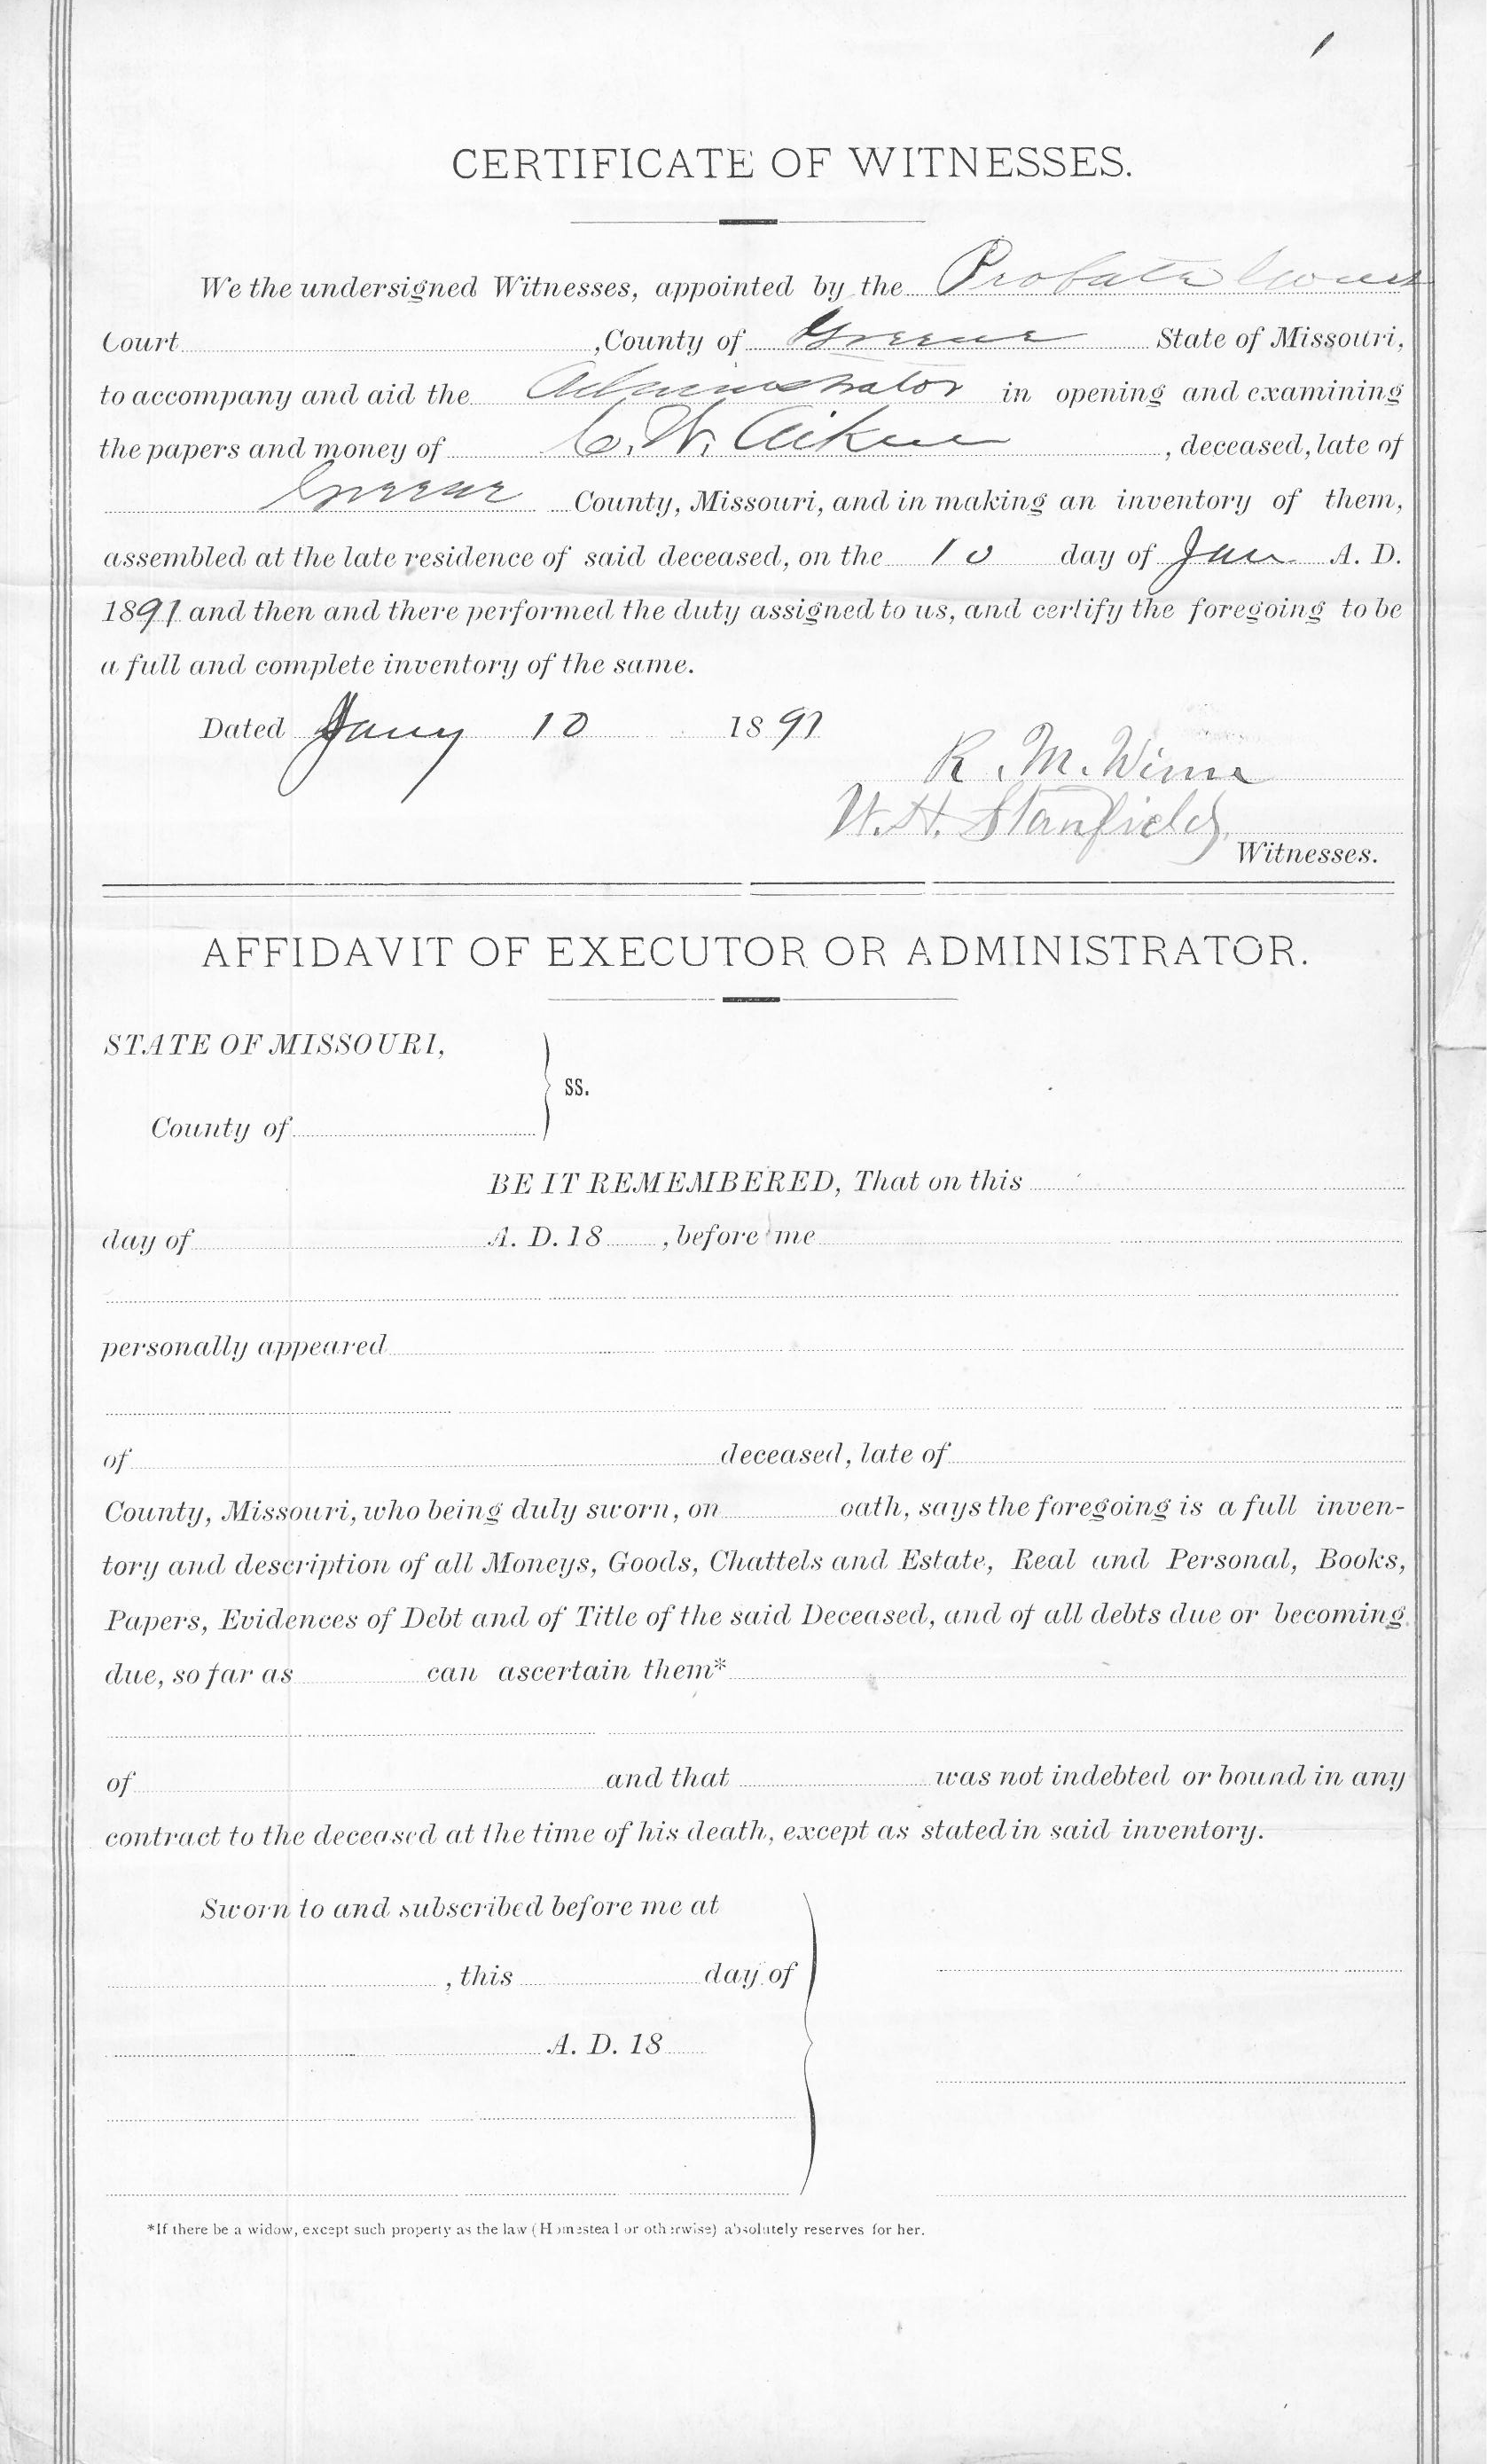 CERTIFICATE OF WITNESSES.
We the undersigned Witnesses, appointed by the Probate Court
Court , County of Greene State of Missouri,
to accompany and aid the Administrator in opening and examining
the papers and money of C. W. Aiken , deceased, late of
Greene County, Missouri, and in making an inventory of them,
assembled at the late residence of said deceased, on the 10 day of Jan A. D.
1891 and then and there performed the duty assigned to us, and certify the foregoing to be
a full and complete inventory of the same.
Dated Jany 10 1891
R. M.
W. H. Stanfield
Witnesses.
AFFIDAVIT OF EXECUTOR OR ADMINISTRATOR.
STATE OF MISSOURI,
ss.
County of
BE IT REMEMBERED, That on this
day of A. D. 18 , before me
personally appeared
of deceased, late of
County, Missouri, who being duly sworn, on oath, says the foregoing is a full inven-
tory and description of all Moneys, Goods, Chattels and Estate, Real and Personal, Books,
Papers, Evidences of Debt and of Title of the said Deceased, and of all debts due or becoming
due, so far as can ascertain them*
of and that was not indebted or bound in any
contract to the deceased at the time of his death, except as stated in said inventory.
Sworn to and subscribed before me at
, this day of
A. D. 18
*If there be a widow, except such property as the law (Homestead or otherwise) absolutely reserves for her.